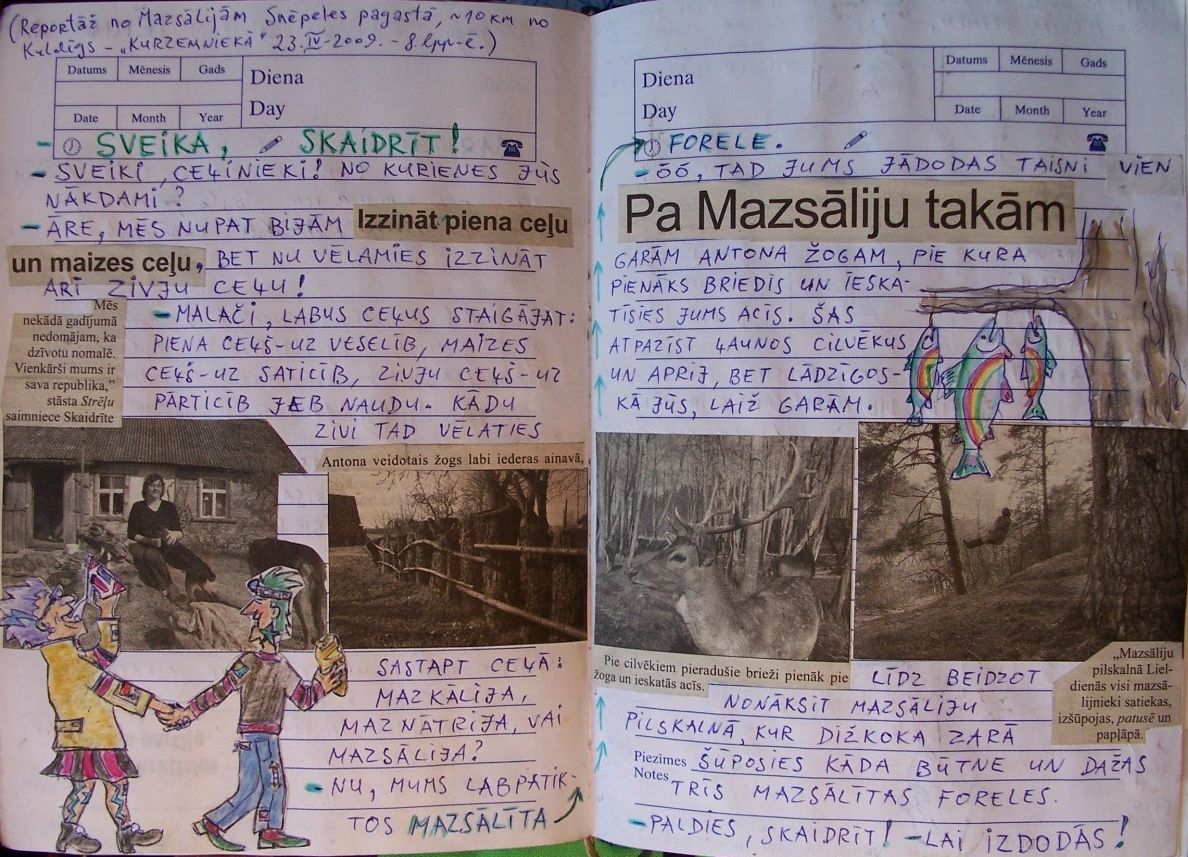 (Reportāž no Mazsālijām Snēpeles pagastā, ~10 km no
Kuldīgs – „KURZEMNIEKĀ" 23.IV-2009. - 8. lpp-ē.)
Datums Mēnesis Gads
Diena
Day
Date Month Year
- SVEIKA, SKAIDRĪT!
- SVEIKI, CEĻINIEKI! NO KURIENES JŪS
NĀKDAMI?
- ĀRE, MĒS NUPAT BIJĀM Izzināt piena ceļu
un maizes ceļu, BET NU VĒLAMIES IZZINĀT
ARĪ ZIVJU CEĻU!
Mēs
nekādā gadījumā
nedomājam, ka
dzīvotu nomalē.
Vienkārši mums ir
sava republika,"
stāsta Strēļu
saimniece Skaidrīte
- MALAČI, LABUS CEĻUS STAIGĀJAT:
PIENA CEĻŠ-UZ VESELĪB, MAIZES
CEĻŠ-UZ SATICĪB, ZIVJU CEĻŠ-UZ
PĀRTICĪB JEB NAUDU. KĀDU
ZIVI TAD VĒLATIES
Antona veidotais žogs labi iederas ainavā,
SASTAPT CEĻĀ:
MAZKĀLIJA,
MAZNĀTRIJA, VAI
MAZSĀLIJA?
- NU, MUMS LABPATIK-
TOS MAZSĀLĪTA
Diena
Day
Datums Mēnesis Gads
Date Month Year
FORELE.
- ŌŌ, TAD JUMS JĀDODAS TAISNI VIEN
Pa Mazsāliju takām
GARĀM ANTONA ŽOGAM, PIE KURA
PIENĀKS BRIEDIS UN IESKA-
TĪSIES JUMS ACĪS. ŠAS
ATPAZĪST ĻAUNOS CILVĒKUS
UN APRIJ, BET LĀDZĪGOS-
KĀ JŪS, LAIŽ GARĀM.
Pie cilvēkiem pieradušie brieži pienāk pie
žoga un ieskatās acīs.
LĪDZ BEIDZOT
NONĀKSIT MAZSĀLIJU
PILSKALNĀ, KUR DIŽKOKA ZARĀ
„Mazsāliju
pilskalnā Liel-
dienās visi mazsā-
lijnieki satiekas,
izšūpojas, patusē un
papļāpā.
Piezīmes
Notes
ŠŪPOSIES KĀDA BŪTNE UN DAŽAS
TRĪS MAZSĀLĪTAS FORELES.
- PALDIES, SKAIDRĪT! - LAI IZDODĀS!